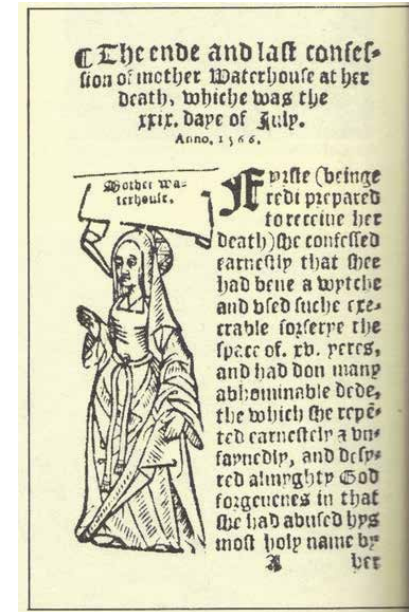 ¶ The ende and last confes-
sion of mother Waterhouse at her
death, whiche was the
xxix. daye of July.
Anno, 1566.
Mother wa-
terhouse.
Fyrste (beinge
redi prepared
to receiue her
death) she confessed
earnestly that shee
had bene a wytche
and vsed suche exe-
crable sorserye the
space of. xv. yeres,
and had don many
abhominable dede,
the which she repē-
ted earnestely & vn-
faynedly, and desy-
red almyghty God
forgeuenes in that
she had abused hys
most holy name by
A her